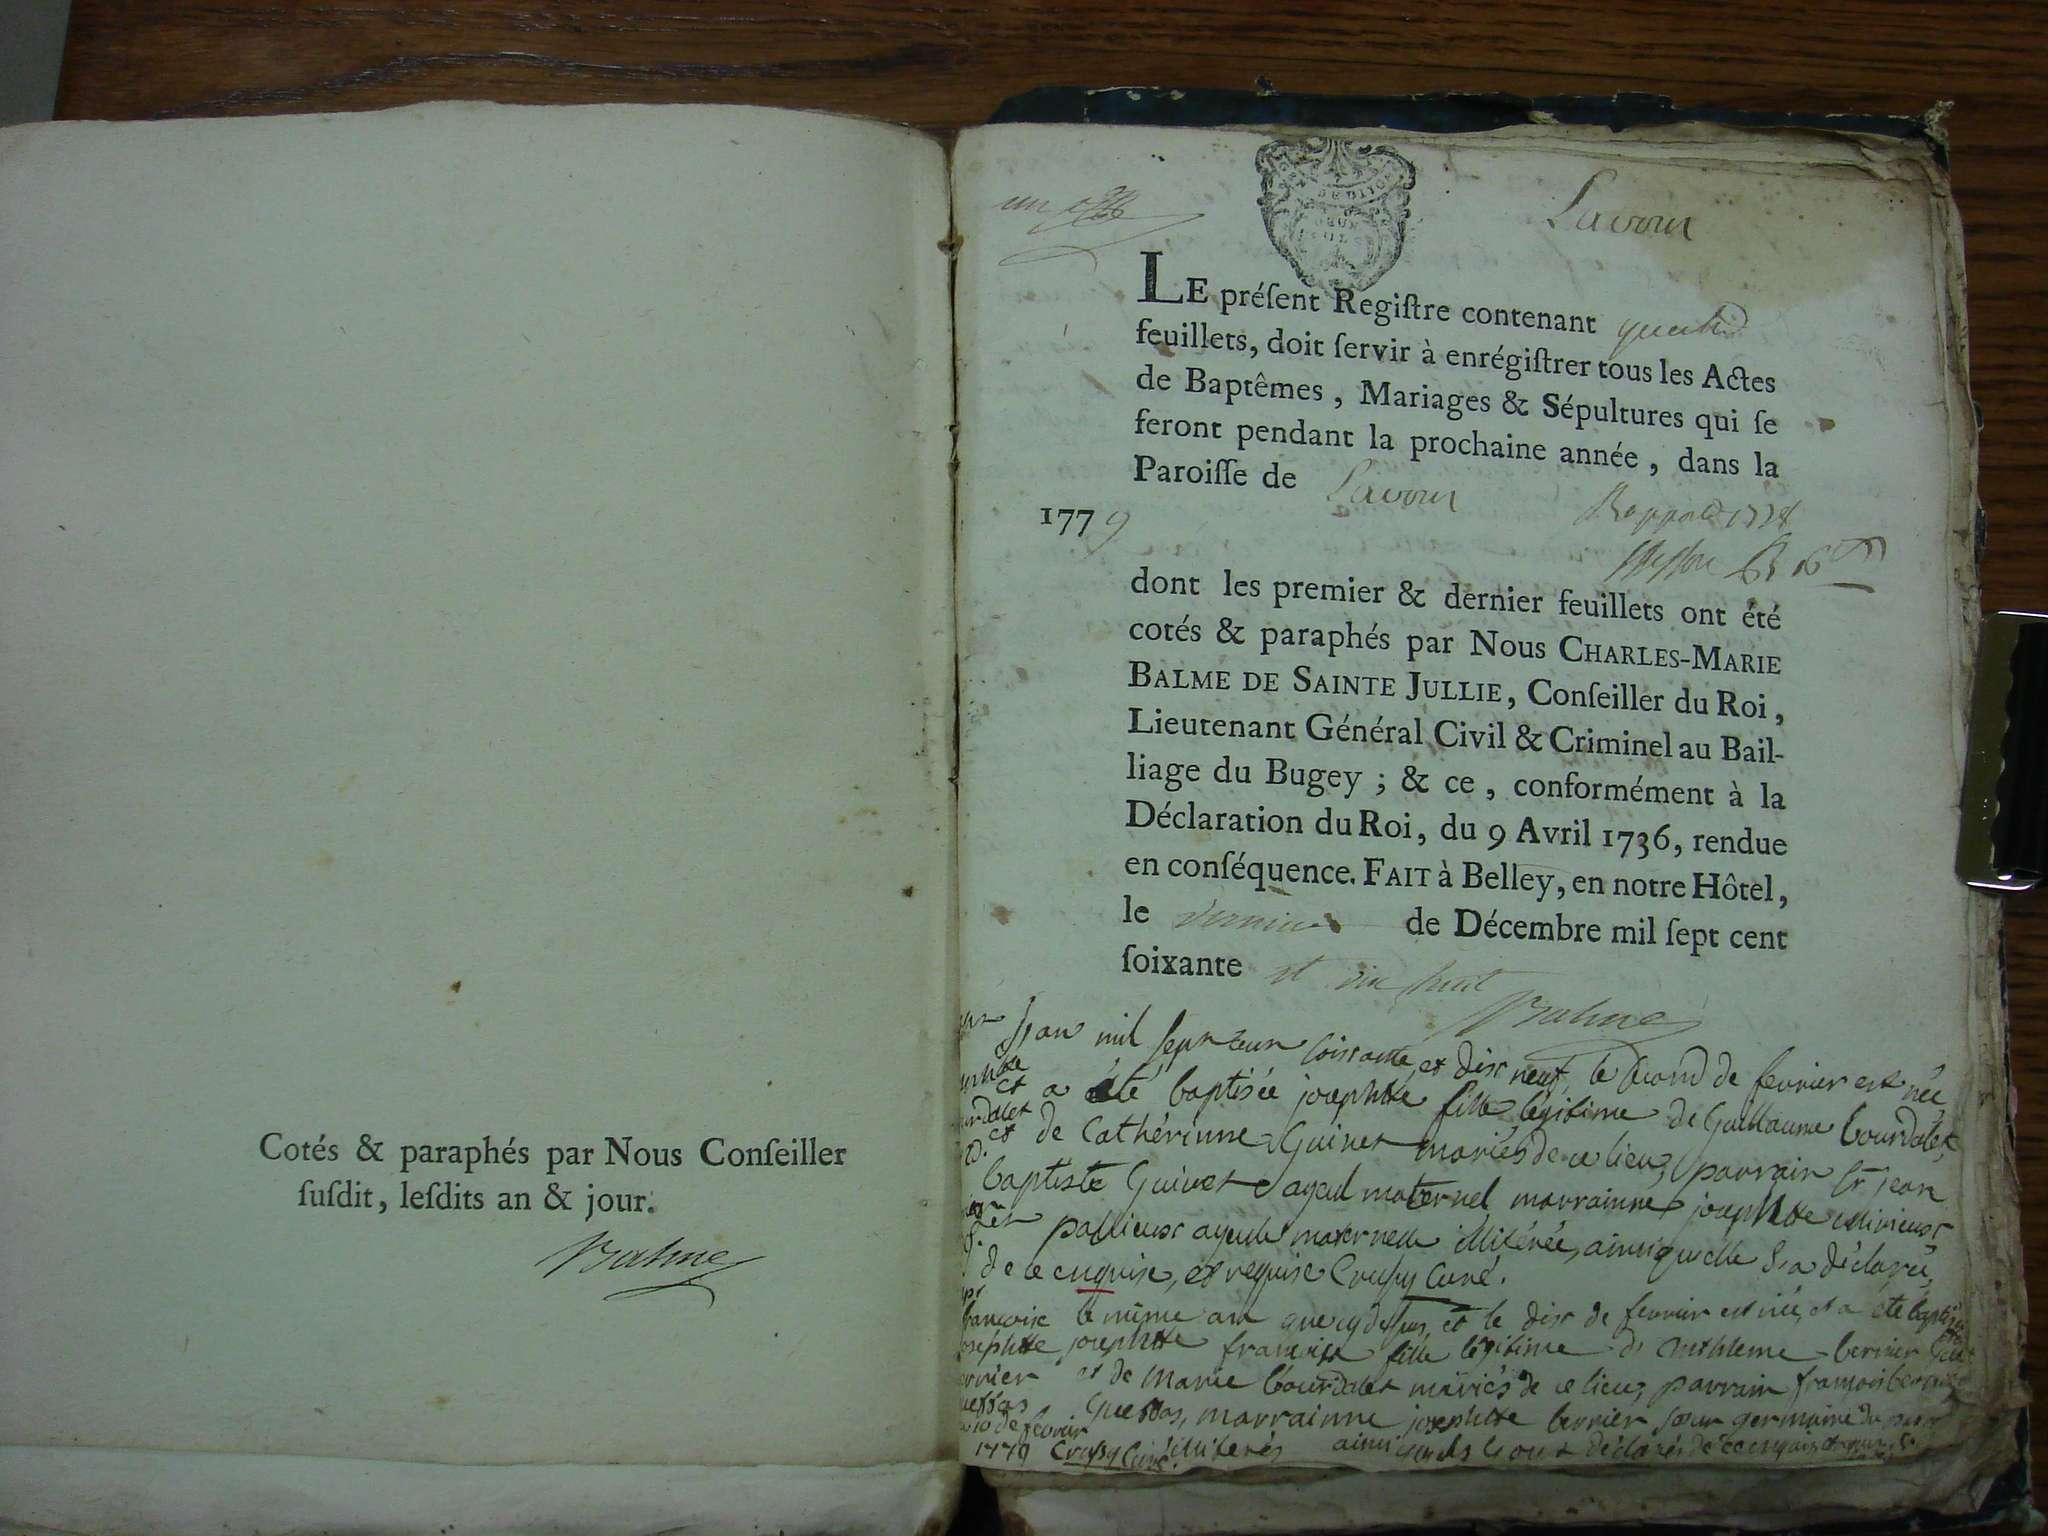 Cotés & paraphés par Nous Conſeiller
ſuſdit, leſdits an & jour.
Balme
un
Lavour
LE préſent Regiſtre contenant
feuillets, doit ſervir à enrégiſtrer tous les Actes
de Baptêmes, Mariages & Sépultures qui ſe
feront pendant la prochaine année, dans la
Paroiſſe de Lavour
1779
dont les premier & dernier feuillets ont été
cotés & paraphés par Nous CHARLES-MARIE
BALME DE SAINTE JULLIE, Conſeiller du Roi,
Lieutenant Général Civil & Criminel au Bail-
liage du Bugey; & ce, conformément à la
Déclaration du Roi, du 9 Avril 1736, rendue
en conſéquence. FAIT à Belley, en notre Hôtel,
le dernier de Décembre mil ſept cent
ſoixante et dix huit
Balme
mil sept cent soixante et dix neuf, le second de fevrier est née
et a été baptisée josephtte fille légitime de Guillaume bourdalet
et de Cathérinne Guinet mariés de ce lieu, parrain sr jean
baptiste Guinet ayeul maternel marrainne josephtte
ayeule maternelle illitérée, ainsi qu'elle l'a déclaré,
de ce enquise, et requise Crussy Curé.
le même an que cy dessus, et le dix de fevrier est née, et a été baptisée
josephtte françoise fille légitime de Anthleme bernier
et de Marie bourdalet mariés de ce lieu, parrain françois bernier
Guessas, marrainne josephtte bernier sœur germaine du
10 de fevrier
1779 Crussy Curé. illiterés ainsi qu'ils l'ont déclarés de ce enquis